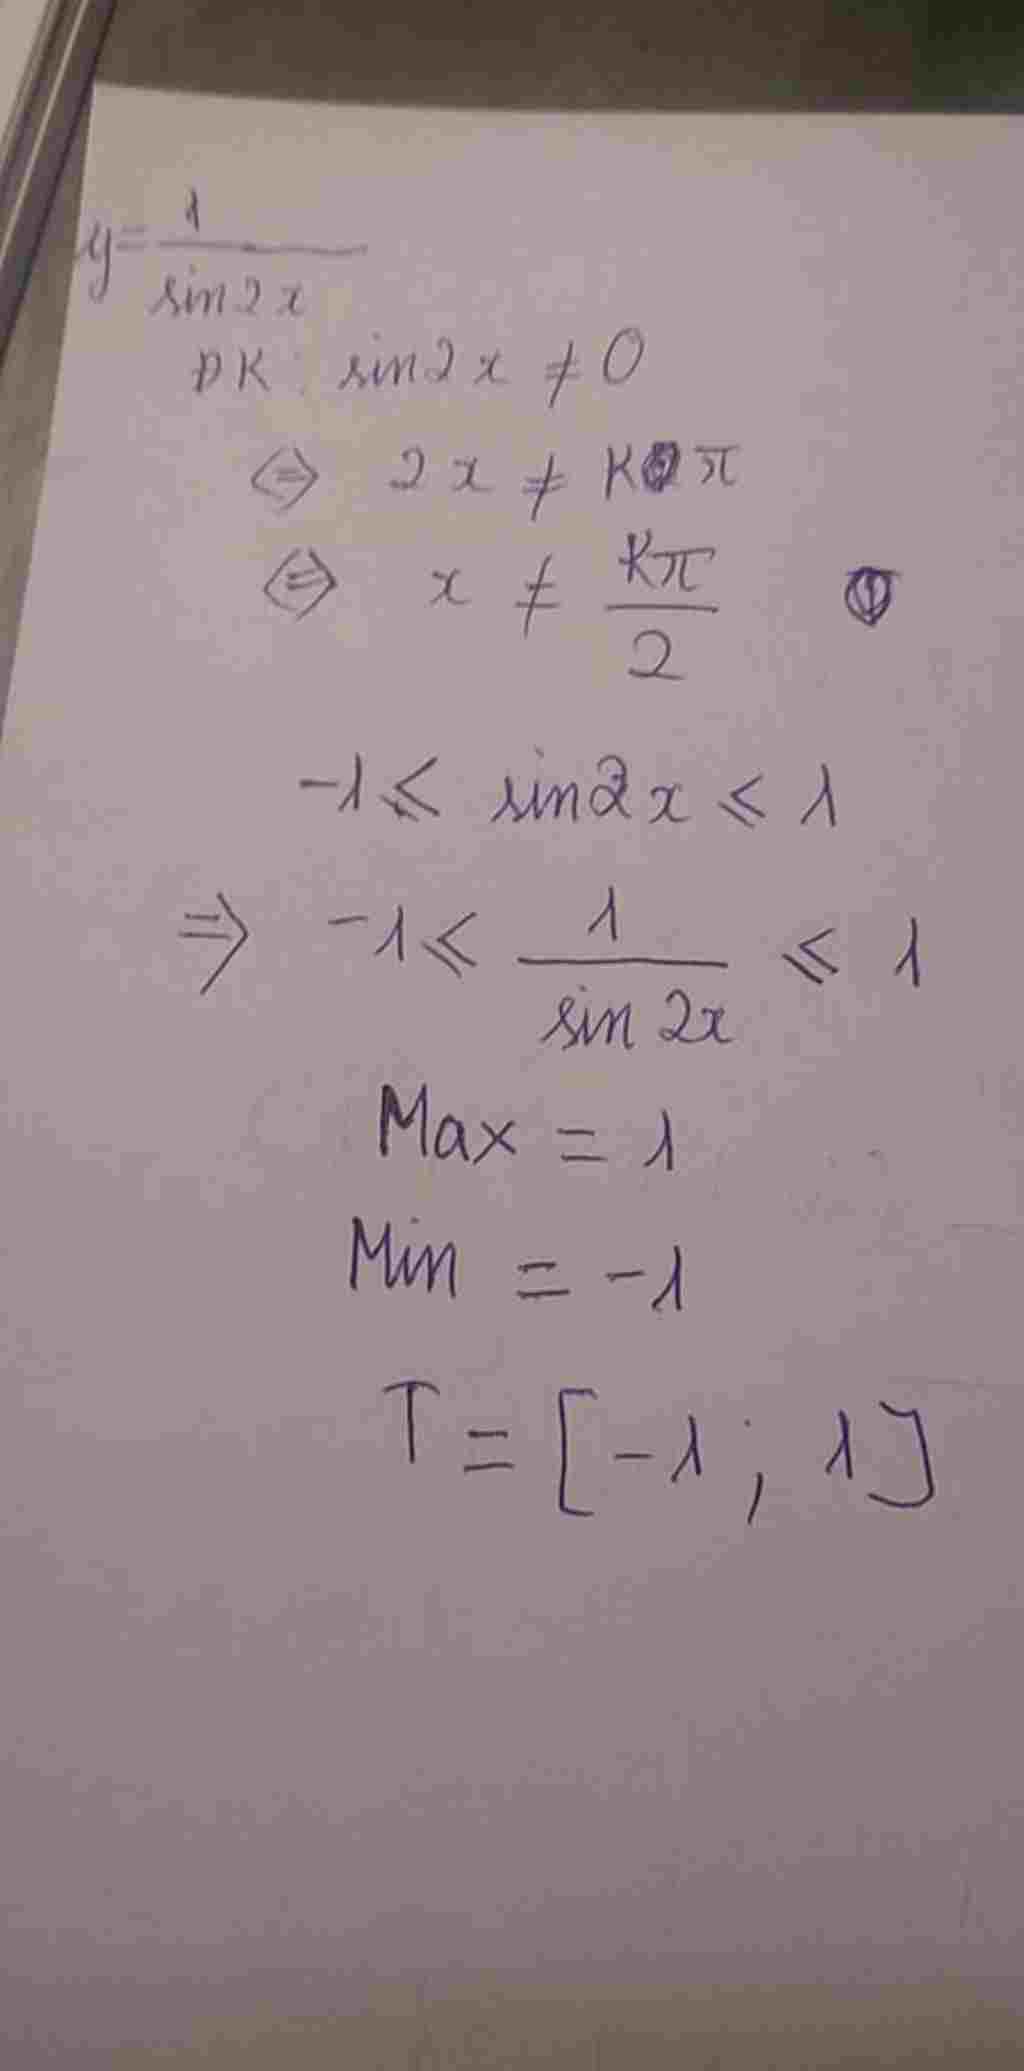 y = 1/sin2x
ĐK: sin2x ≠ 0
⇔ 2x ≠ Kπ
⇔ x ≠ Kπ/2
-1 ≤ sin2x ≤ 1
⇒ -1 ≤ 1/sin 2x ≤ 1
Max = 1
Min = -1
T = [-1 ; 1]